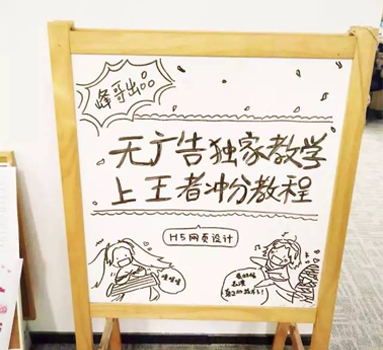 峰哥出品
无广告独家教学
上王者冲分教程
H5网页设计